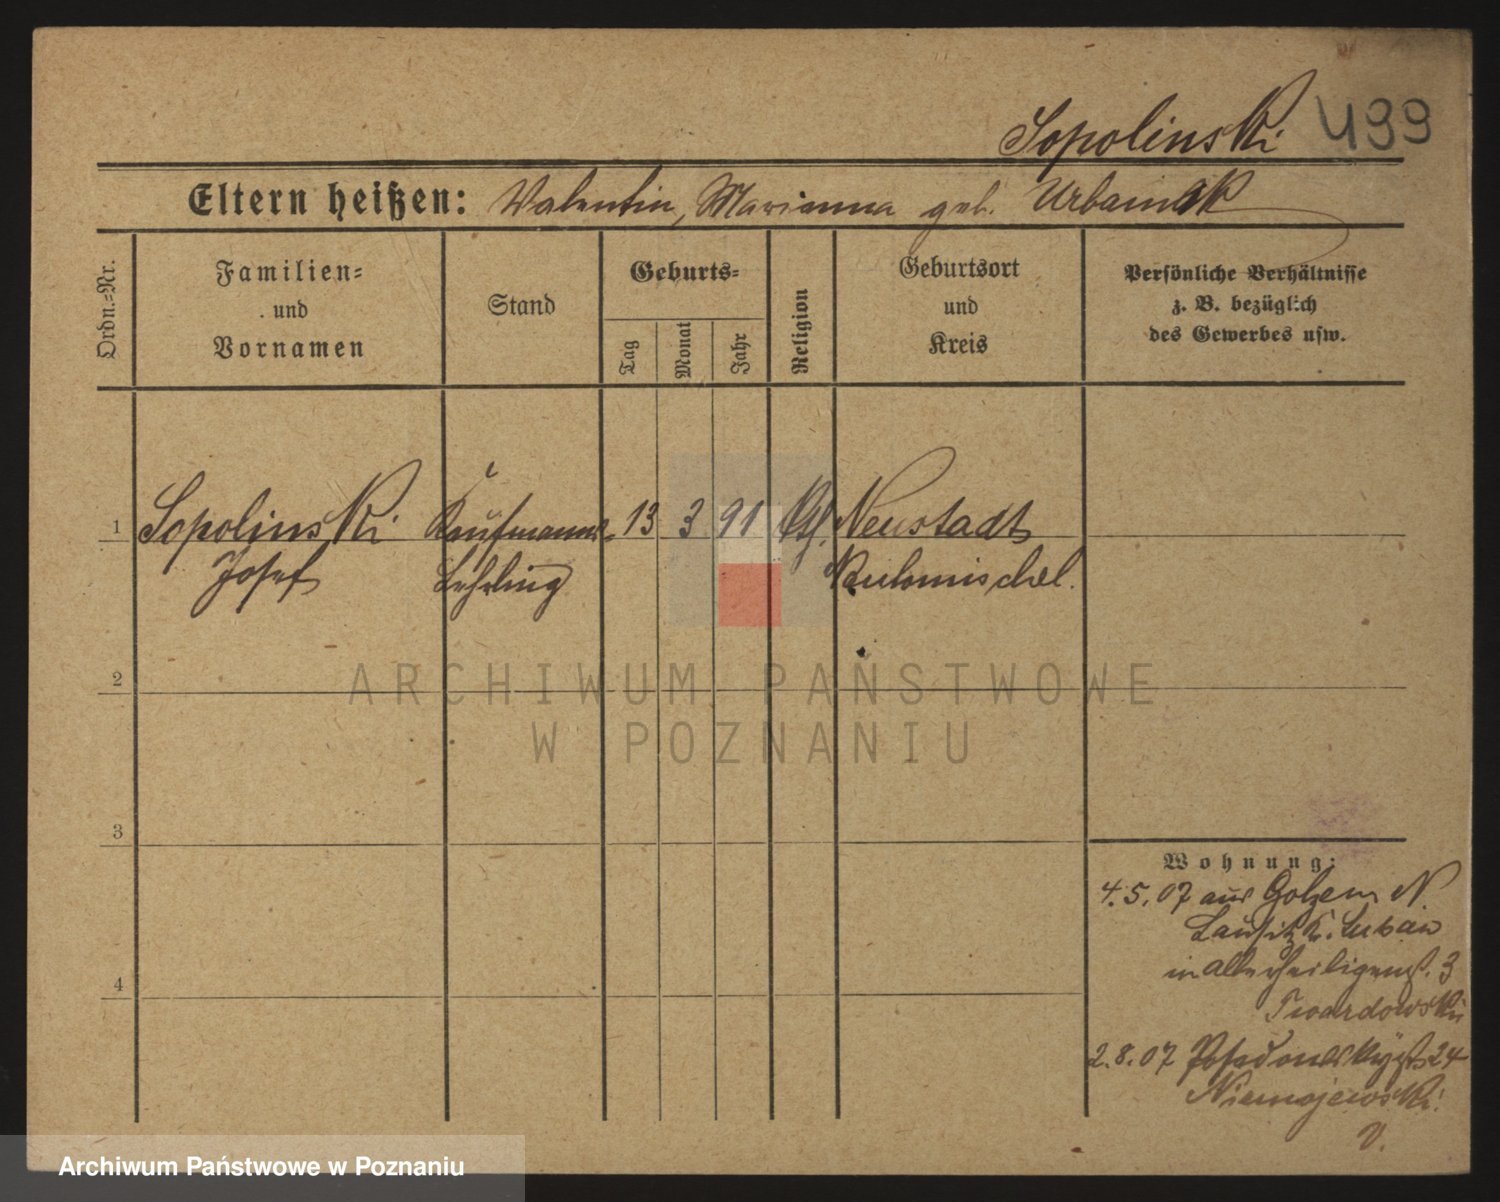 Sopolinski 499
Eltern heißen: Valentin, Marianna geb. Urbaniak
Ordn.-Nr.
Familien-
und
Vornamen
Stand
Geburts-
Tag
Monat
Jahr
Religion
Geburtsort
und
Kreis
Persönliche Verhältnisse
z. B. bezüglich
des Gewerbes usw.
1 Sopolinski Kaufmanns- 13 3 91 Kth. Neustadt
Josef Lehrling Neutomischel.
2
3
4
Wohnung:
4.5.07 aus N.
Lausitz K.
in Allerheiligenst. 3
Twardowski
2.8.07 24
Niemojewski
V.
ARCHIWUM PAŃSTWOWE
W POZNANIU
Archiwum Państwowe w Poznaniu